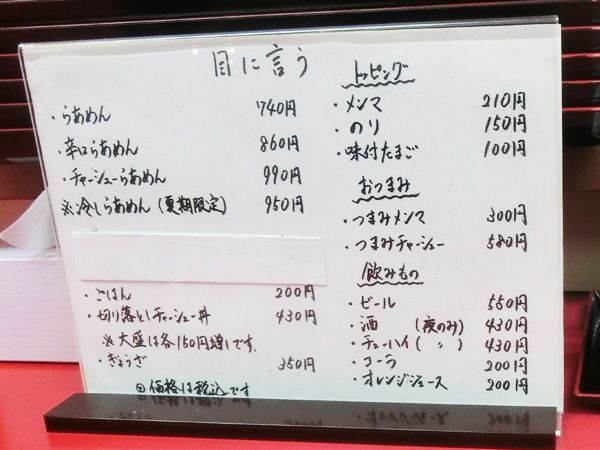 目に言う
・らあめん 740円
・辛口らあめん 860円
・チャーシューらあめん 990円
※冷しらあめん(夏期限定) 950円
・ごはん 200円
・切り落としチャーシュー丼 430円
※大盛は各150円増しです。
・ぎょうざ 350円
価格は税込です
トッピング
・メンマ 210円
・のり 150円
・味付たまご 100円
おつまみ
・つまみメンマ 300円
・つまみチャーシュー 580円
飲みもの
・ビール 550円
・酒 (夜のみ) 430円
・チューハイ( 〃 ) 430円
・コーラ 200円
・オレンジジュース 200円